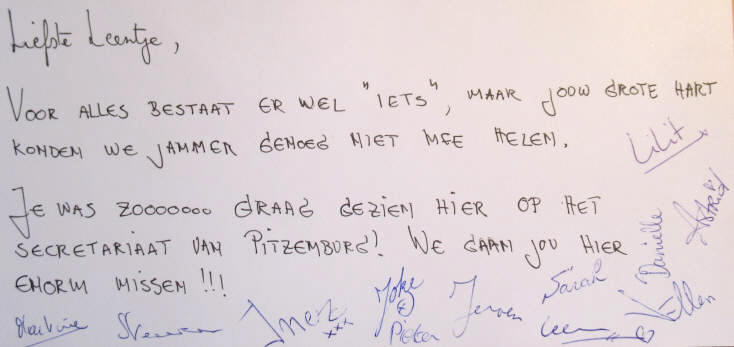 Liefste Leentje,
Voor alles bestaat er wel "iets", maar jouw grote hart
konden we jammer genoeg niet mee helen.
Je was zoooooooo graag gezien hier op het
secretariaat van Pitzemburg! We gaan jou hier
enorm missen!!!
Lilit
Astrid
Daniëlle
Ellen
Sarah
Jeroen
Joke
&
Pieter
Inez
xxx
Leen
Steven
Martine